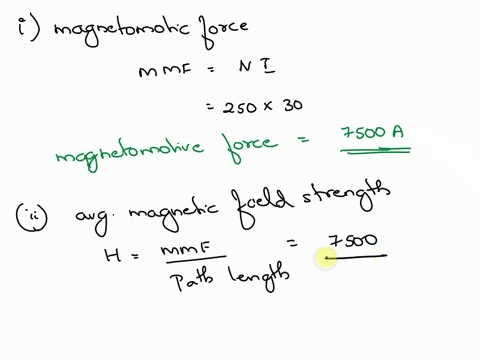 i) magnetomotic force
MMF = N I
= 250 x 30
magnetomotive force = 7500 A
(ii) avg. magnetic field strength
H = MMF / Path length = 7500